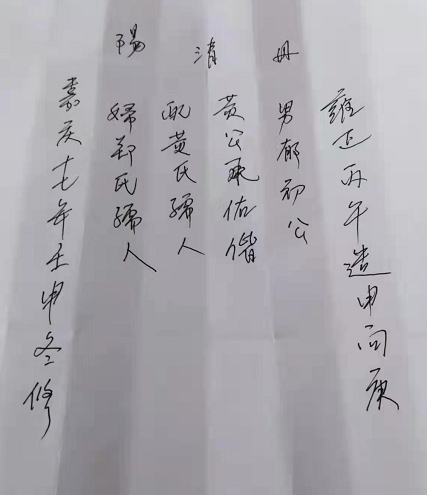 清陽
雍正丙午造申向庚
男郁初公
黄公承佑偕
配黄氏孺人
婦郑氏孺人
嘉庆十七年壬申冬修